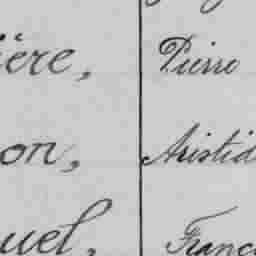 ière, Pierre
on, Aristid
uel, Franç